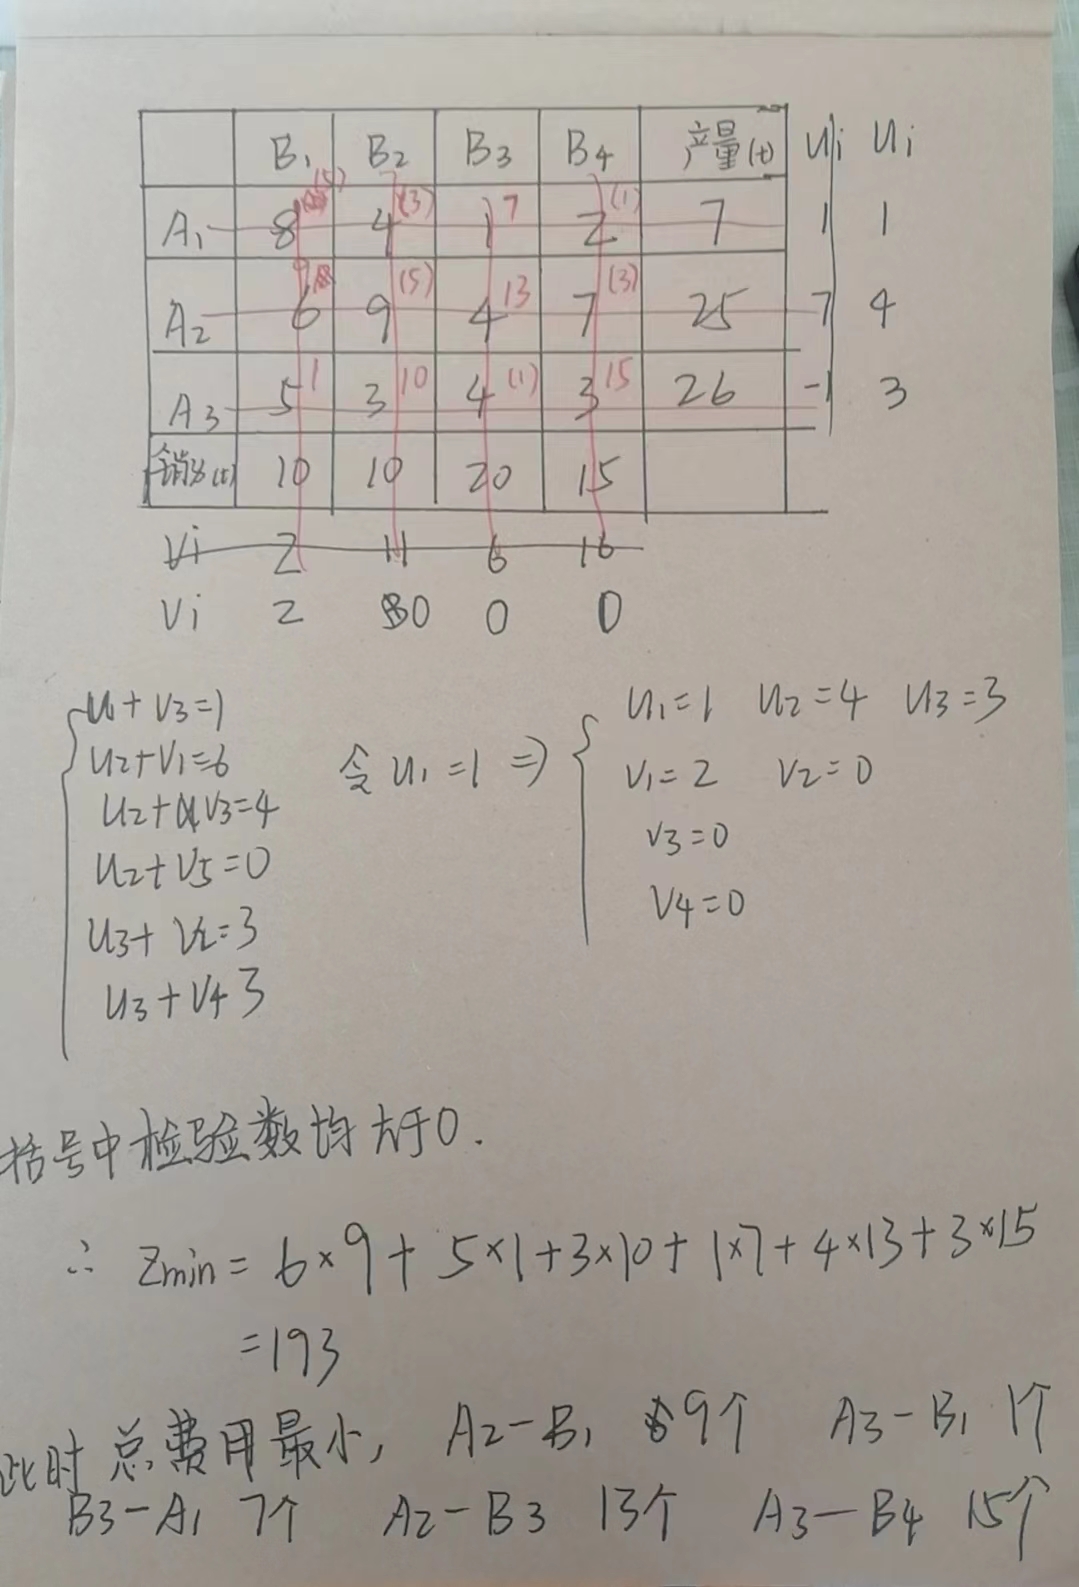 B₁ B₂ B₃ B₄ 产量(t) Ui Ui
A₁ 8 (5) 4 (3) 1 7 2 (1) 7 1 1
A₂ 6 9 9 (5) 4 13 7 (3) 25 7 4
A₃ 5 1 3 10 4 (1) 3 15 26 -1 3
销量(t) 10 10 20 15
Vi 2 11 6 16
Vi 2 0 0 0
U₁+V3=1
U2+V1=6
U2+V3=4
U2+V5=0
U3+V2=3
U3+V4 3
令U₁=1 ⇒
U₁=1 U2=4 U3=3
V1=2 V2=0
V3=0
V4=0
括号中检验数均大于0.
∴ Zmin=6×9+5×1+3×10+1×7+4×13+3×15
=193
此时总费用最小, A2-B₁ 9个 A3-B₁ 1个
B3-A₁ 7个 A2-B3 13个 A3-B4 15个